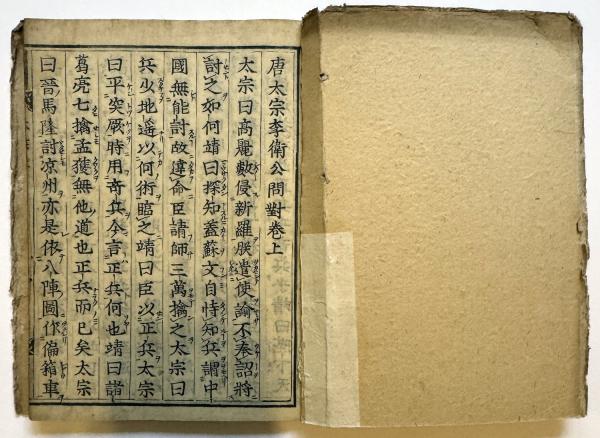 唐太宗李衞公問對卷上
太宗曰高麗數侵新羅朕遣使諭不奉詔將
討之如何靖曰探知蓋蘇文自恃知兵謂中
國無能討故違命臣請師三萬擒之太宗曰
兵少地遥以何術臨之靖曰臣以正兵太宗
曰平突厥時用奇兵今言正兵何也靖曰諸
葛亮七擒孟獲無他道也正兵而已矣太宗
曰晉馬隆討凉州亦是依八陣圖作偏箱車